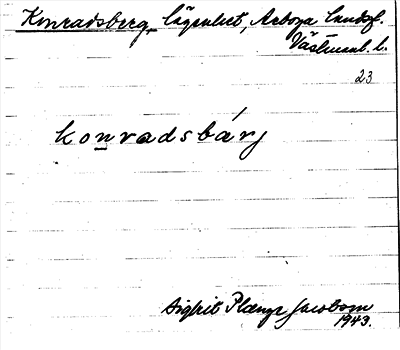 Konradsberg, lägenhet, Arboga landsf.
Västmanl. l.
23
konradsbárj
Sigfrit Plænge Jacobson
1943.